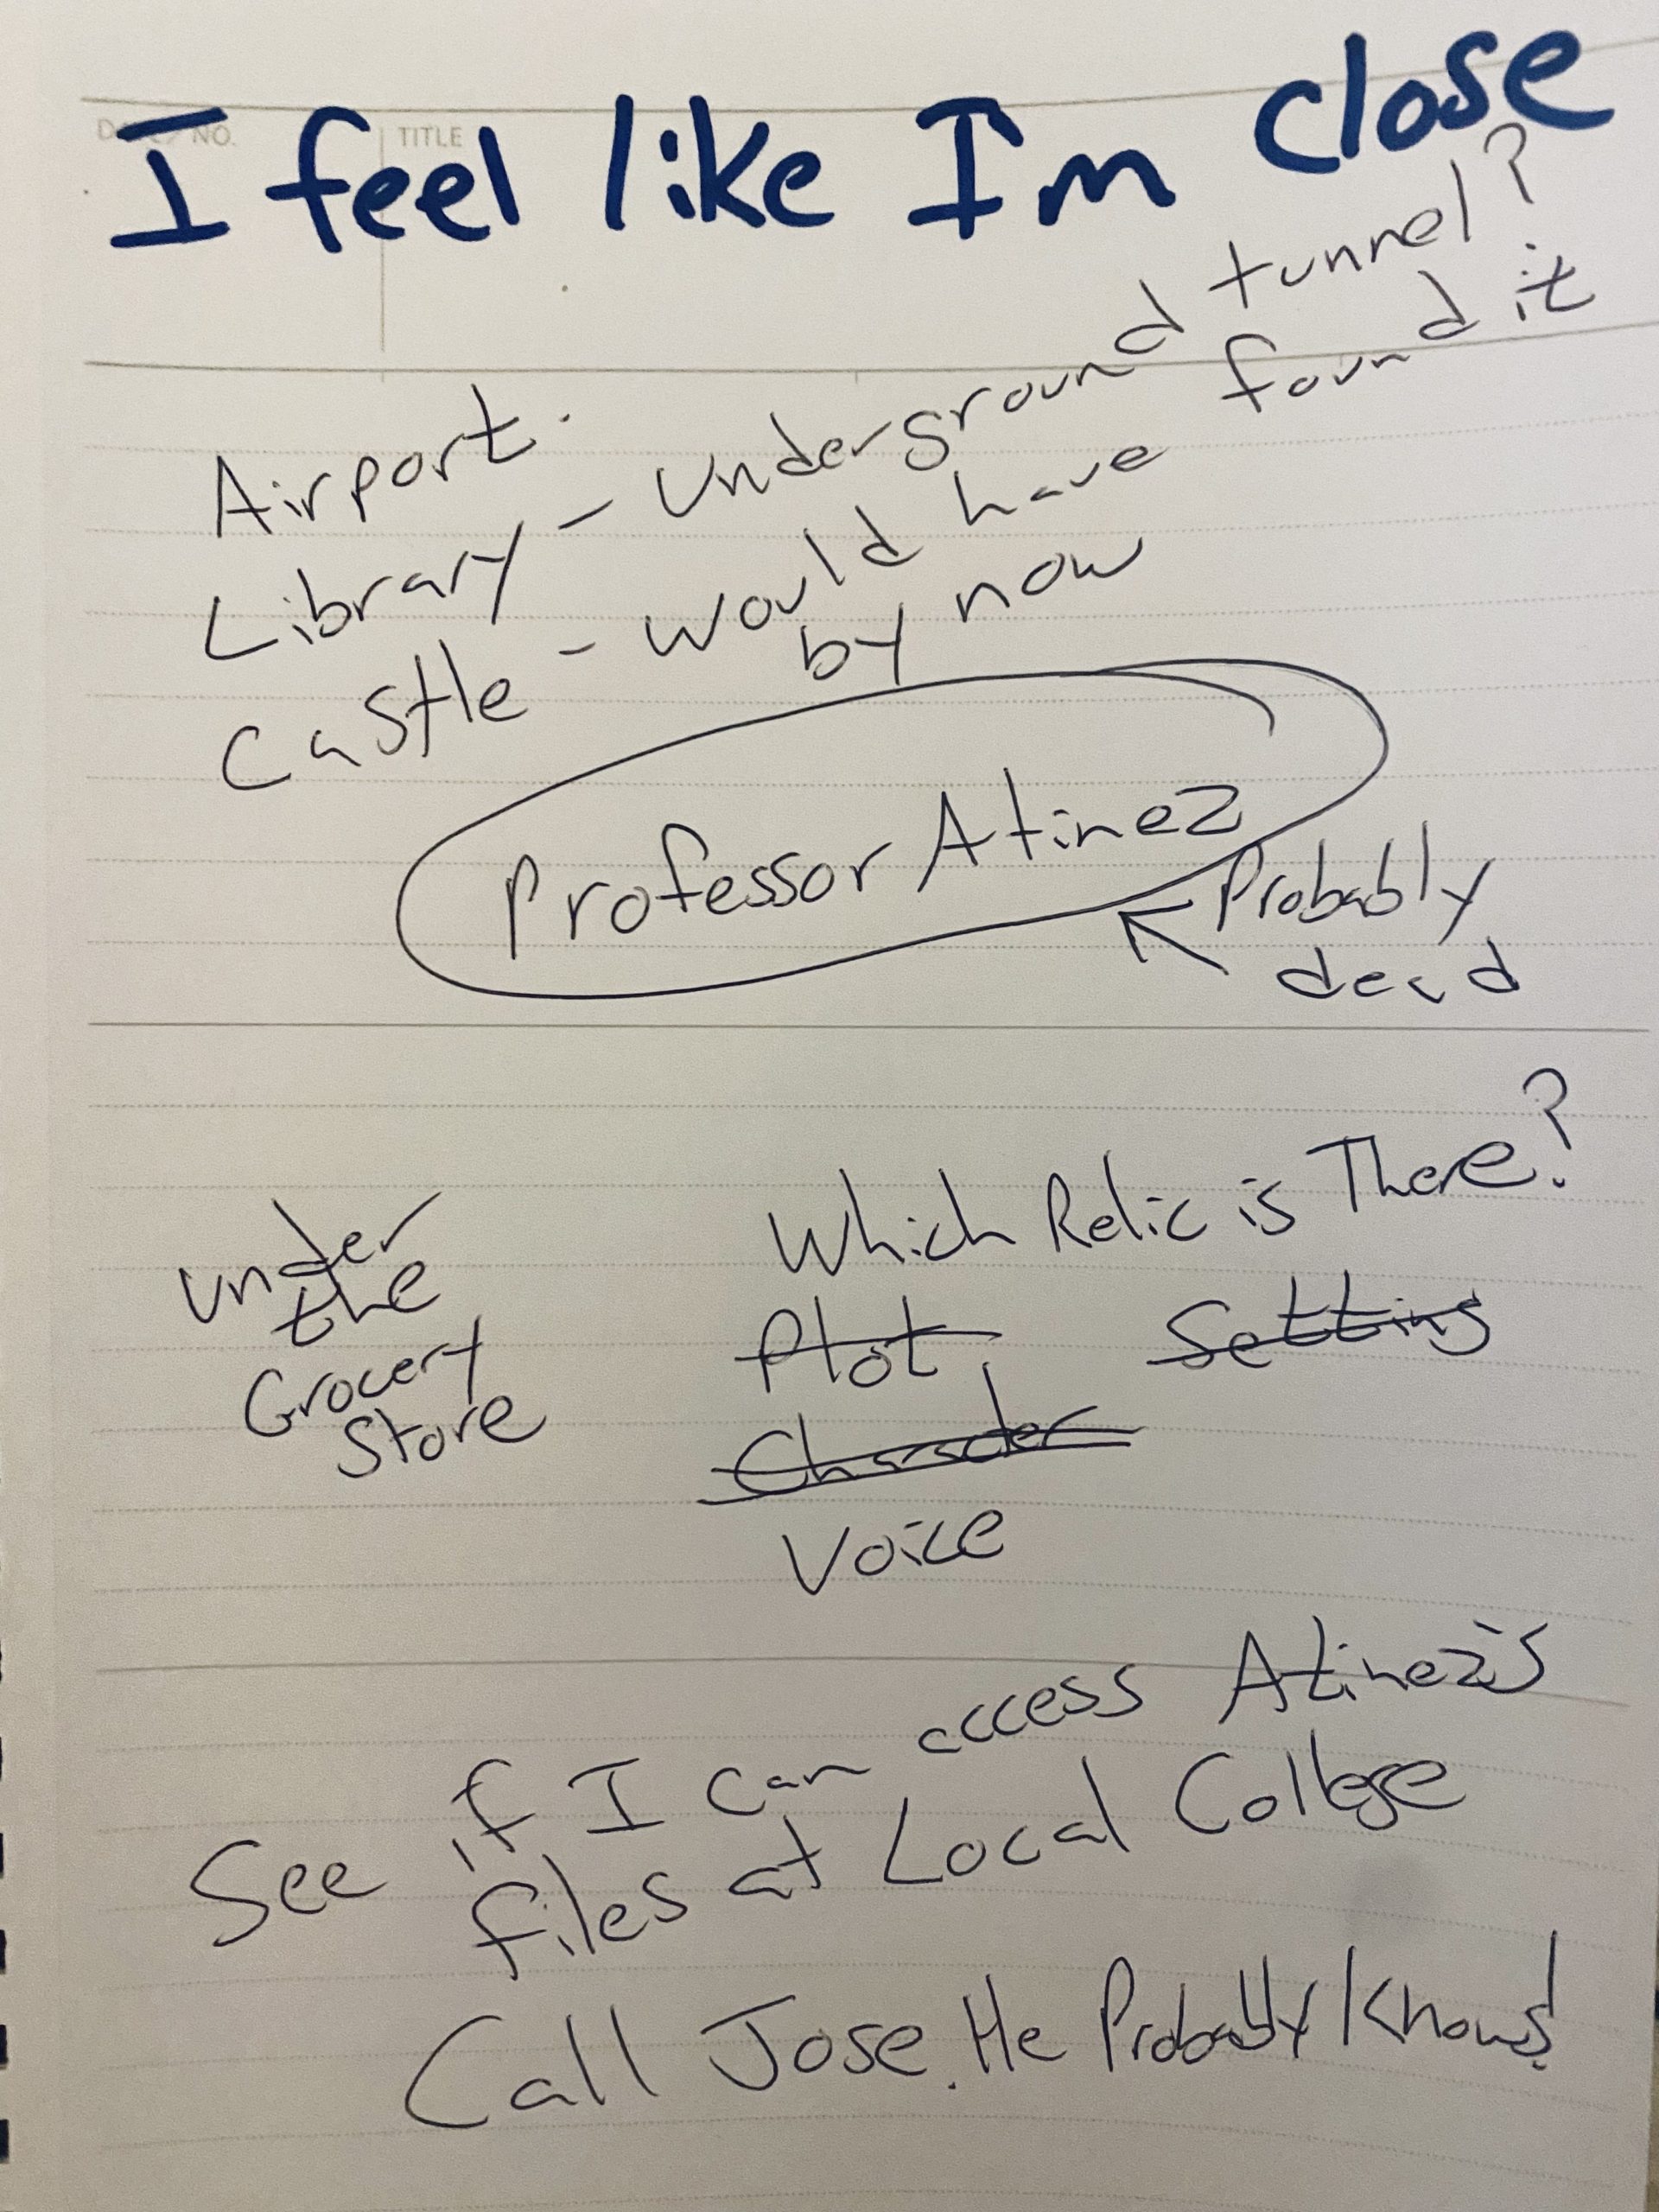 I feel like I'm close
DATE / NO.
TITLE
Airport.
Library - underground tunnel?
Castle - would have found it
by now
Professor Atinez
Probably
dead
under
the
Grocery
Store
Which Relic is There?
Plot
Setting
Character
Voice
See if I can access Atinez's
files at Local College
Call Jose. He Probably Knows!